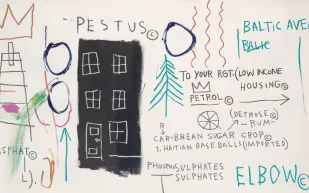 PESTUS©
BALTIC AVE
BALTIC
TO YOUR RGT. (LOW INCOME
HOUSING©
PETROL©
(DETROSE©
-RUM-
R
CARIBBEAN SUGAR CROP©
1. HAITIAN BASE BALLS (IMPORTED)
ASPHAT©
L).
PHOSPHUSULPHATES
SULPHATES
ELBOW©